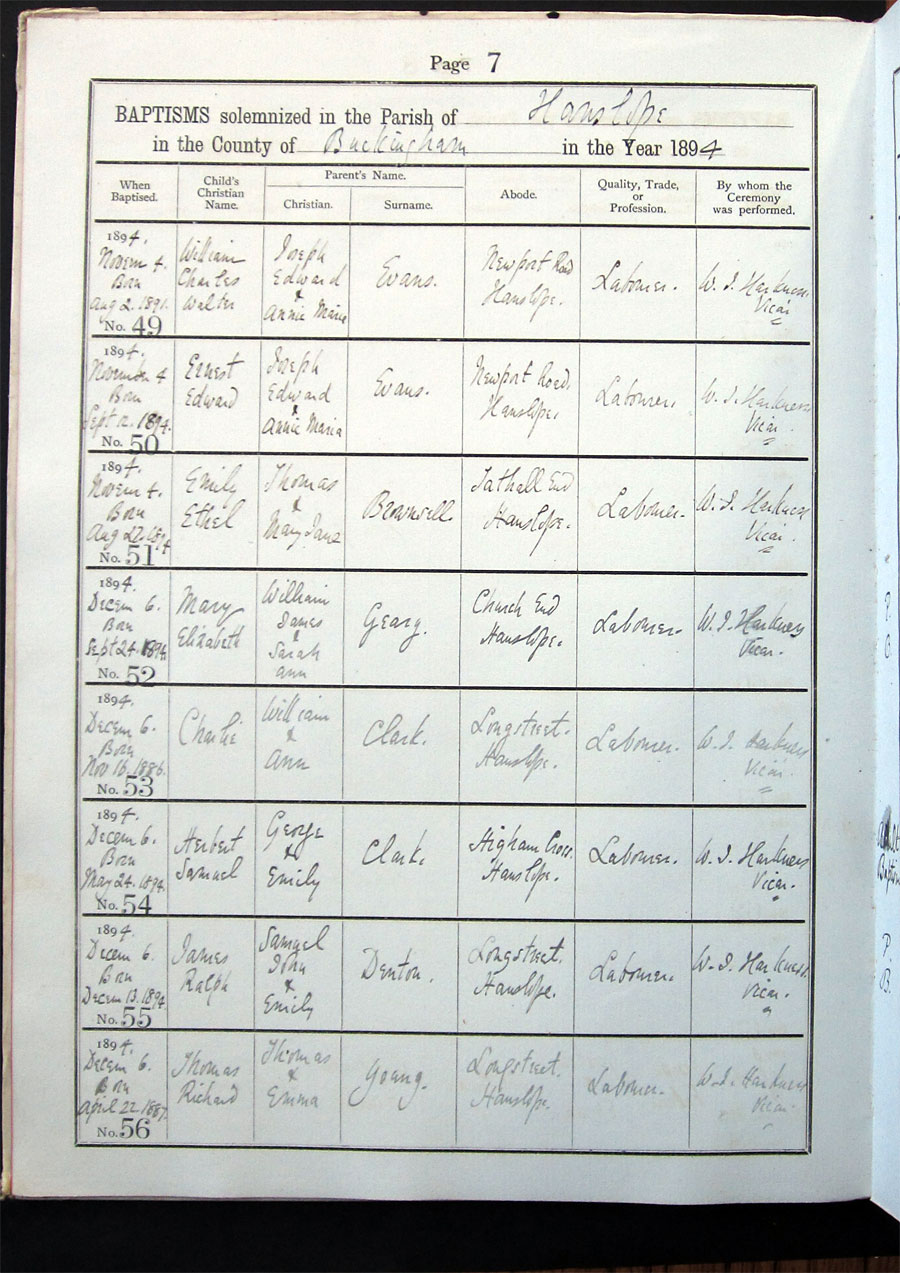 Page 7
BAPTISMS solemnized in the Parish of Hanslope
in the County of Buckingham in the Year 1894
When Baptised. Child's Christian Name. Parent's Name. Christian. Surname. Abode. Quality, Trade, or Profession. By whom the Ceremony was performed.
1894.
Novem 4.
Born
Aug 2. 1891.
No. 49
William
Charles
Walter
Joseph
Edward
&
Annie Maria
Evans.
Newport Road
Hanslope.
Labourer.
W. J. Harkness.
Vicar
1894.
November 4
Born
Sept 12. 1894.
No. 50
Ernest
Edward
Joseph
Edward
&
Annie Maria
Evans.
Newport Road.
Hanslope.
Labourer.
W. J. Harkness
Vicar.
1894.
Novem 4.
Born
Aug 22. 1894
No. 51
Emily
Ethel
Thomas
&
Mary Jane
Brownsell.
Tathall End
Hanslope.
Labourer.
W. J. Harkness
Vicar.
1894.
Decem 6.
Born
Sept 24. 1894.
No. 52
Mary
Elizabeth
William
James
&
Sarah
Ann
Geary.
Church End
Hanslope.
Labourer.
W. J. Harkness
Vicar.
1894.
Decem 6.
Born
Nov 16. 1886.
No. 53
Charlie
William
&
Ann
Clark.
Longstreet.
Hanslope.
Labourer.
W. J. Harkness
Vicar.
1894.
Decem 6.
Born
May 24. 1894.
No. 54
Herbert
Samuel
George
&
Emily
Clark.
Higham Cross.
Hanslope.
Labourer.
W. J. Harkness
Vicar.
1894.
Decem 6.
Born
Decem 13. 1894.
No. 55
James
Ralph
Samuel
John
&
Emily
Denton.
Longstreet.
Hanslope.
Labourer.
W. J. Harkness.
Vicar.
1894.
Decem 6.
Born
April 22. 1887.
No. 56
Thomas
Richard
Thomas
&
Emma
Young.
Longstreet.
Hanslope.
Labourer.
W. J. Harkness
Vicar.